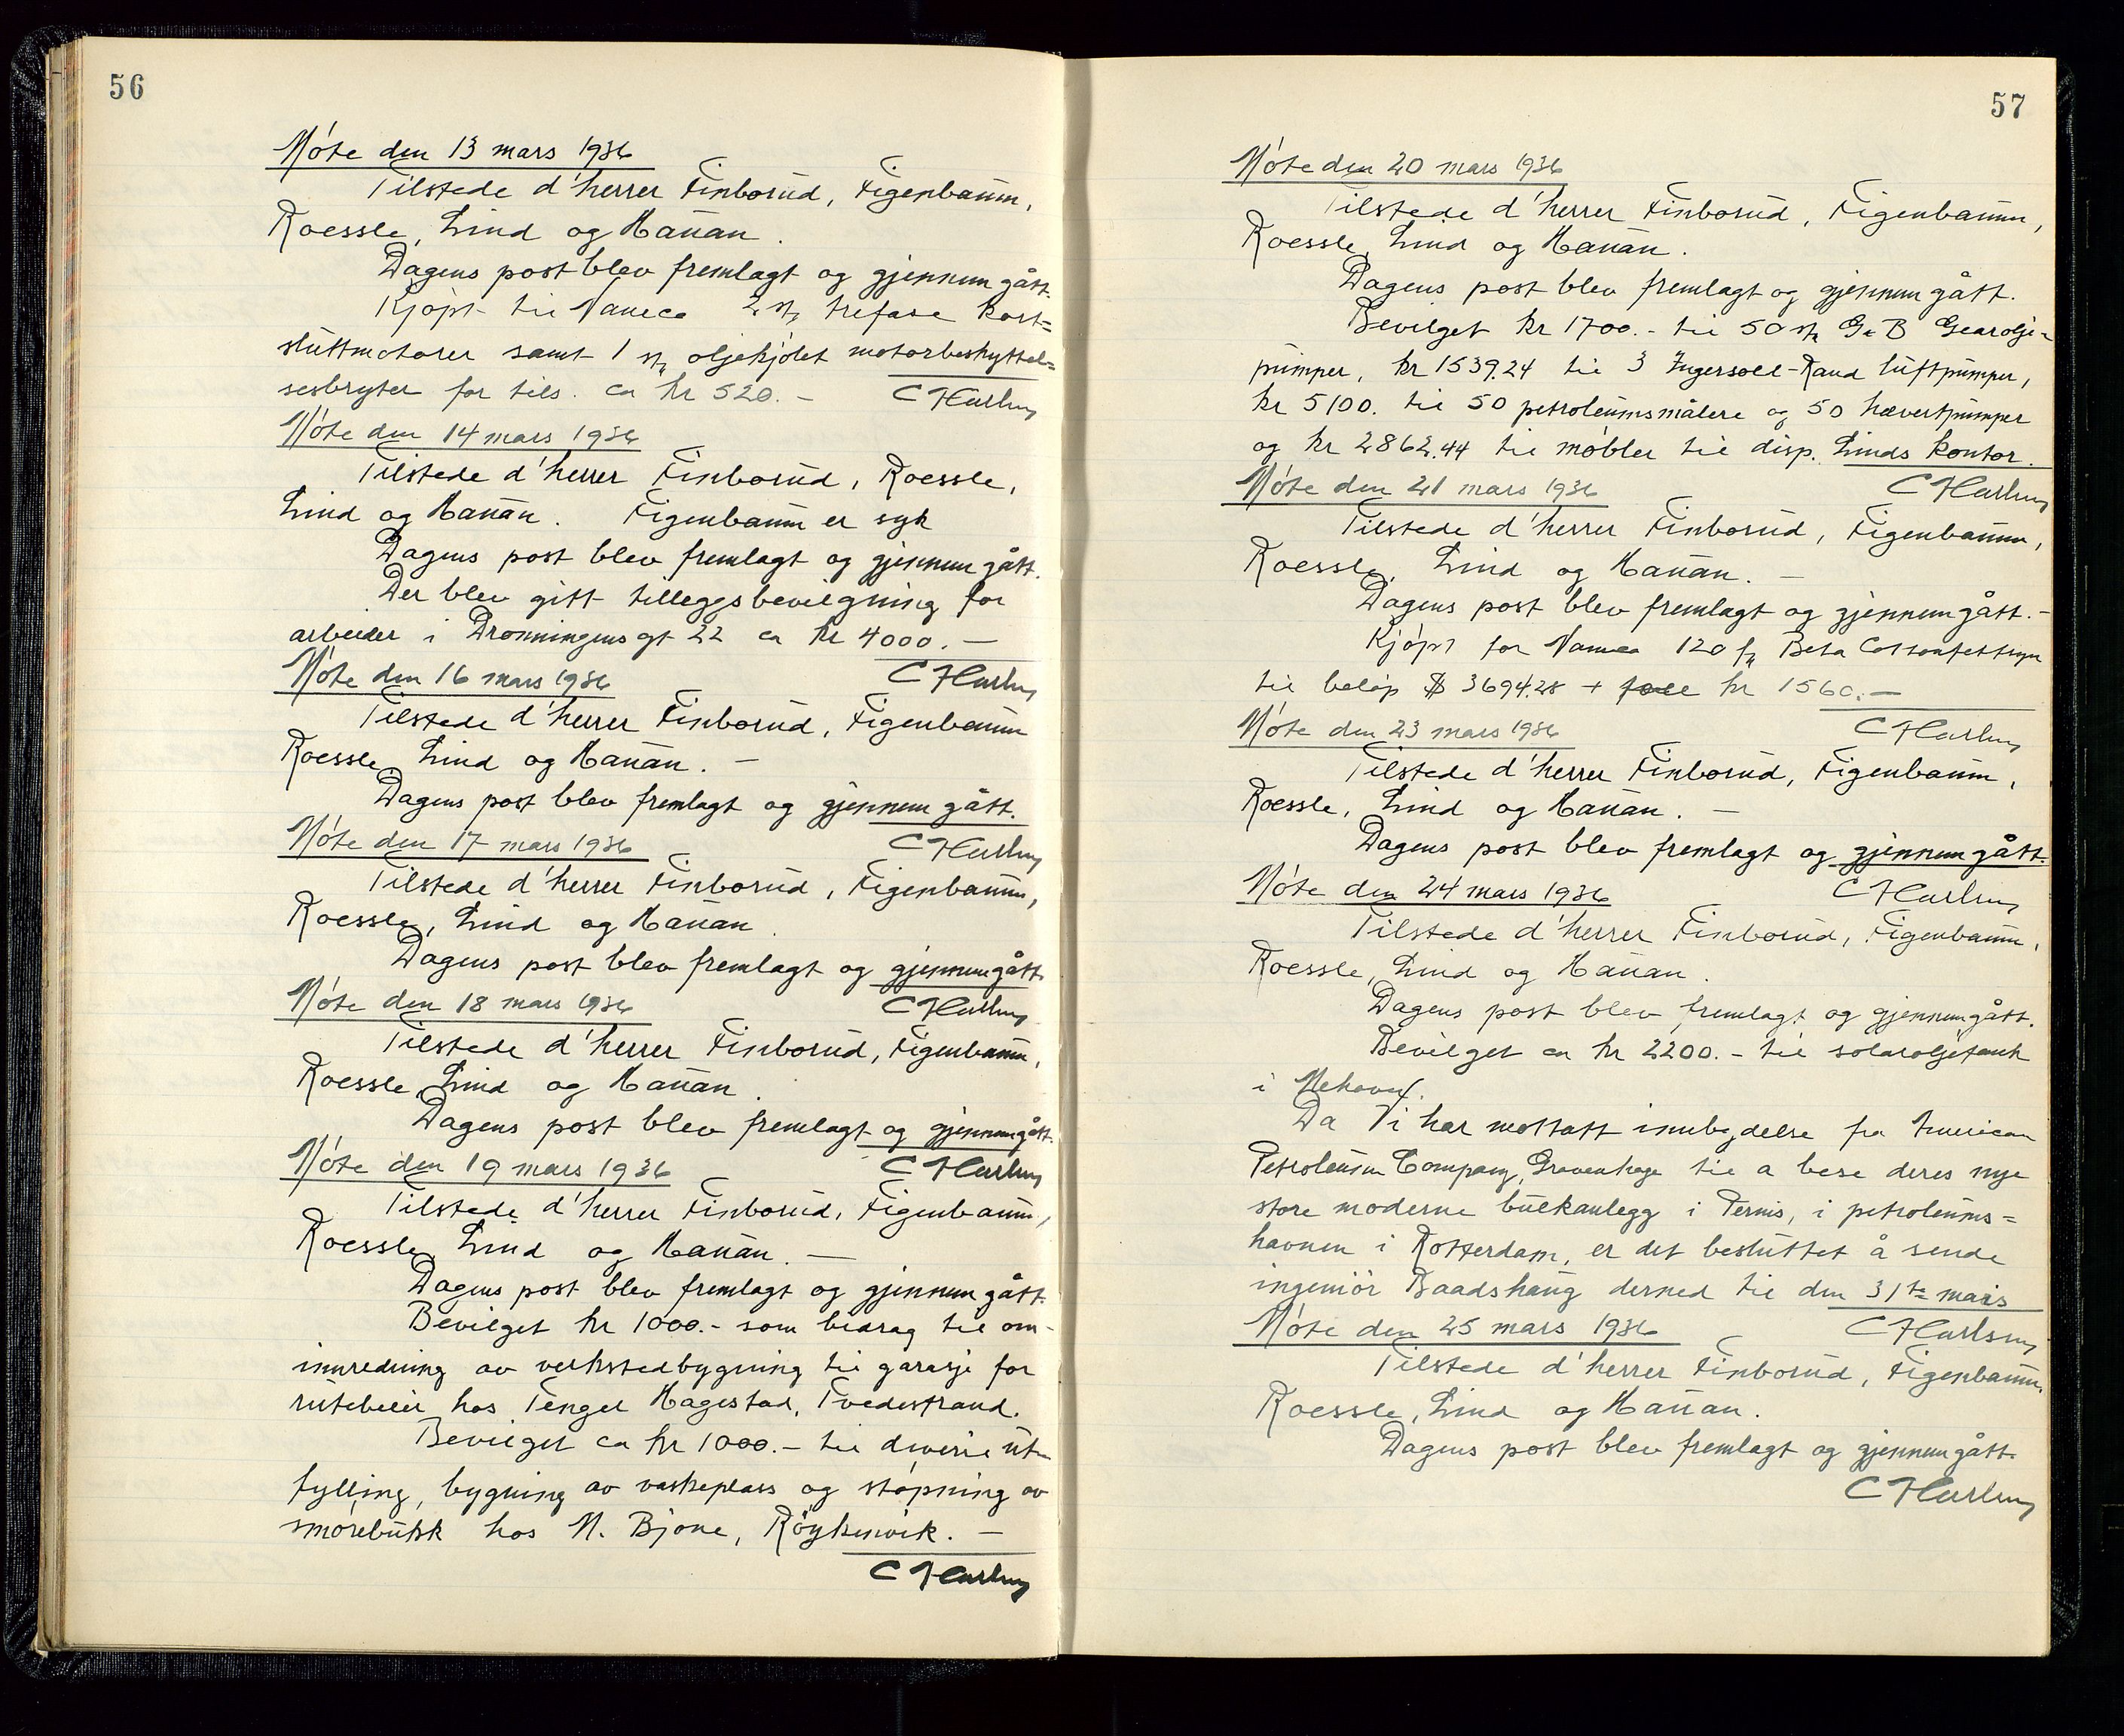 56
Møte den 13 mars 1936
Tilstede d'herrer Finborud, Figenbaum,
Roessle, Lind og Hauan.
Dagens post blev fremlagt og gjennemgått.
Kjøpt til Vaneca 2 stk trefase kort=
sluttmotorer samt 1 stk oljekjølet motorbeskyttel=
sesbryter for tils. ca kr 520.-
Møte den 14 mars 1936
Tilstede d'herrer Finborud, Roessle,
Lind og Hauan. Figenbaum er syk
Dagens post blev fremlagt og gjennemgått.
Der blev gitt tilleggsbevilgning for
arbeider i Dronningensgt 22 ca kr 4000.-
Møte den 16 mars 1936
Tilstede d'herrer Finborud, Figenbaum
Roessle, Lind og Hauan. -
Dagens post blev fremlagt og gjennemgått.
Møte den 17 mars 1936
Tilstede d'herrer Finborud, Figenbaum,
Roessle, Lind og Hauan.
Dagens post blev fremlagt og gjennemgått.
Møte den 18 mars 1936
Tilstede d'herrer Finborud, Figenbaum,
Roessle, Lind og Hauan.
Dagens post blev fremlagt og gjennemgått.
Møte den 19 mars 1936
Tilstede d'herrer Finborud, Figenbaum,
Roessle, Lind og Hauan. -
Dagens post blev fremlagt og gjennemgått.
Bevilget kr 1000.- som bidrag til om-
innredning av verkstedbygning til garasje for
rutebiler hos Tengel Hagestad, Tvedestrand.
Bevilget ca kr 1000.- til diverse ut-
fylling, bygning av vaskeplass og støpning av
smørebukk hos N. Bjone, Røykenvik. -
57
Møte den 20 mars 1936
Tilstede d'herrer Finborud, Figenbaum,
Roessle, Lind og Hauan.
Dagens post blev fremlagt og gjennemgått.
Bevilget kr 1700.- til 50 stk G & B Gearolje=
pumper, kr 1539.24 til 3 Ingersoll-Rand luftpumper,
kr 5100. til 50 petroleumsmålere og 50 hævertpumper
og kr 2862.44 til møbler til disp. Linds kontor.
Møte den 21 mars 1936
Tilstede d'herrer Finborud, Figenbaum,
Roessle, Lind og Hauan. -
Dagens post blev fremlagt og gjennemgått.-
Kjøpt for Vaneca 120 Beta
til beløp $ 3694.28 + kr 1560.-
Møte den 23 mars 1936
Tilstede d'herrer Finborud, Figenbaum,
Roessle, Lind og Hauan. -
Dagens post blev fremlagt og gjennemgått.
Møte den 24 mars 1936
Tilstede d'herrer Finborud, Figenbaum,
Roessle, Lind og Hauan.
Dagens post blev fremlagt og gjennemgått.
Bevilget ca kr 2200.- til solaroljetank
i Mehavn.
Da Vi har mottatt innbydelse fra American
Petroleum Company, Gravenhage til a bese deres nye
store moderne bulkanlegg i Pernis, i petroleums=
havnen i Rotterdam, er det besluttet å sende
ingeniør Baadshaug derned til den 31te mars
Møte den 25 mars 1936
Tilstede d'herrer Finborud, Figenbaum,
Roessle, Lind og Hauan.
Dagens post blev fremlagt og gjennemgått.